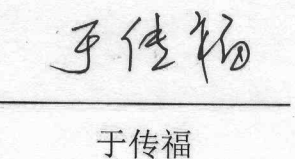 于传福
于传福